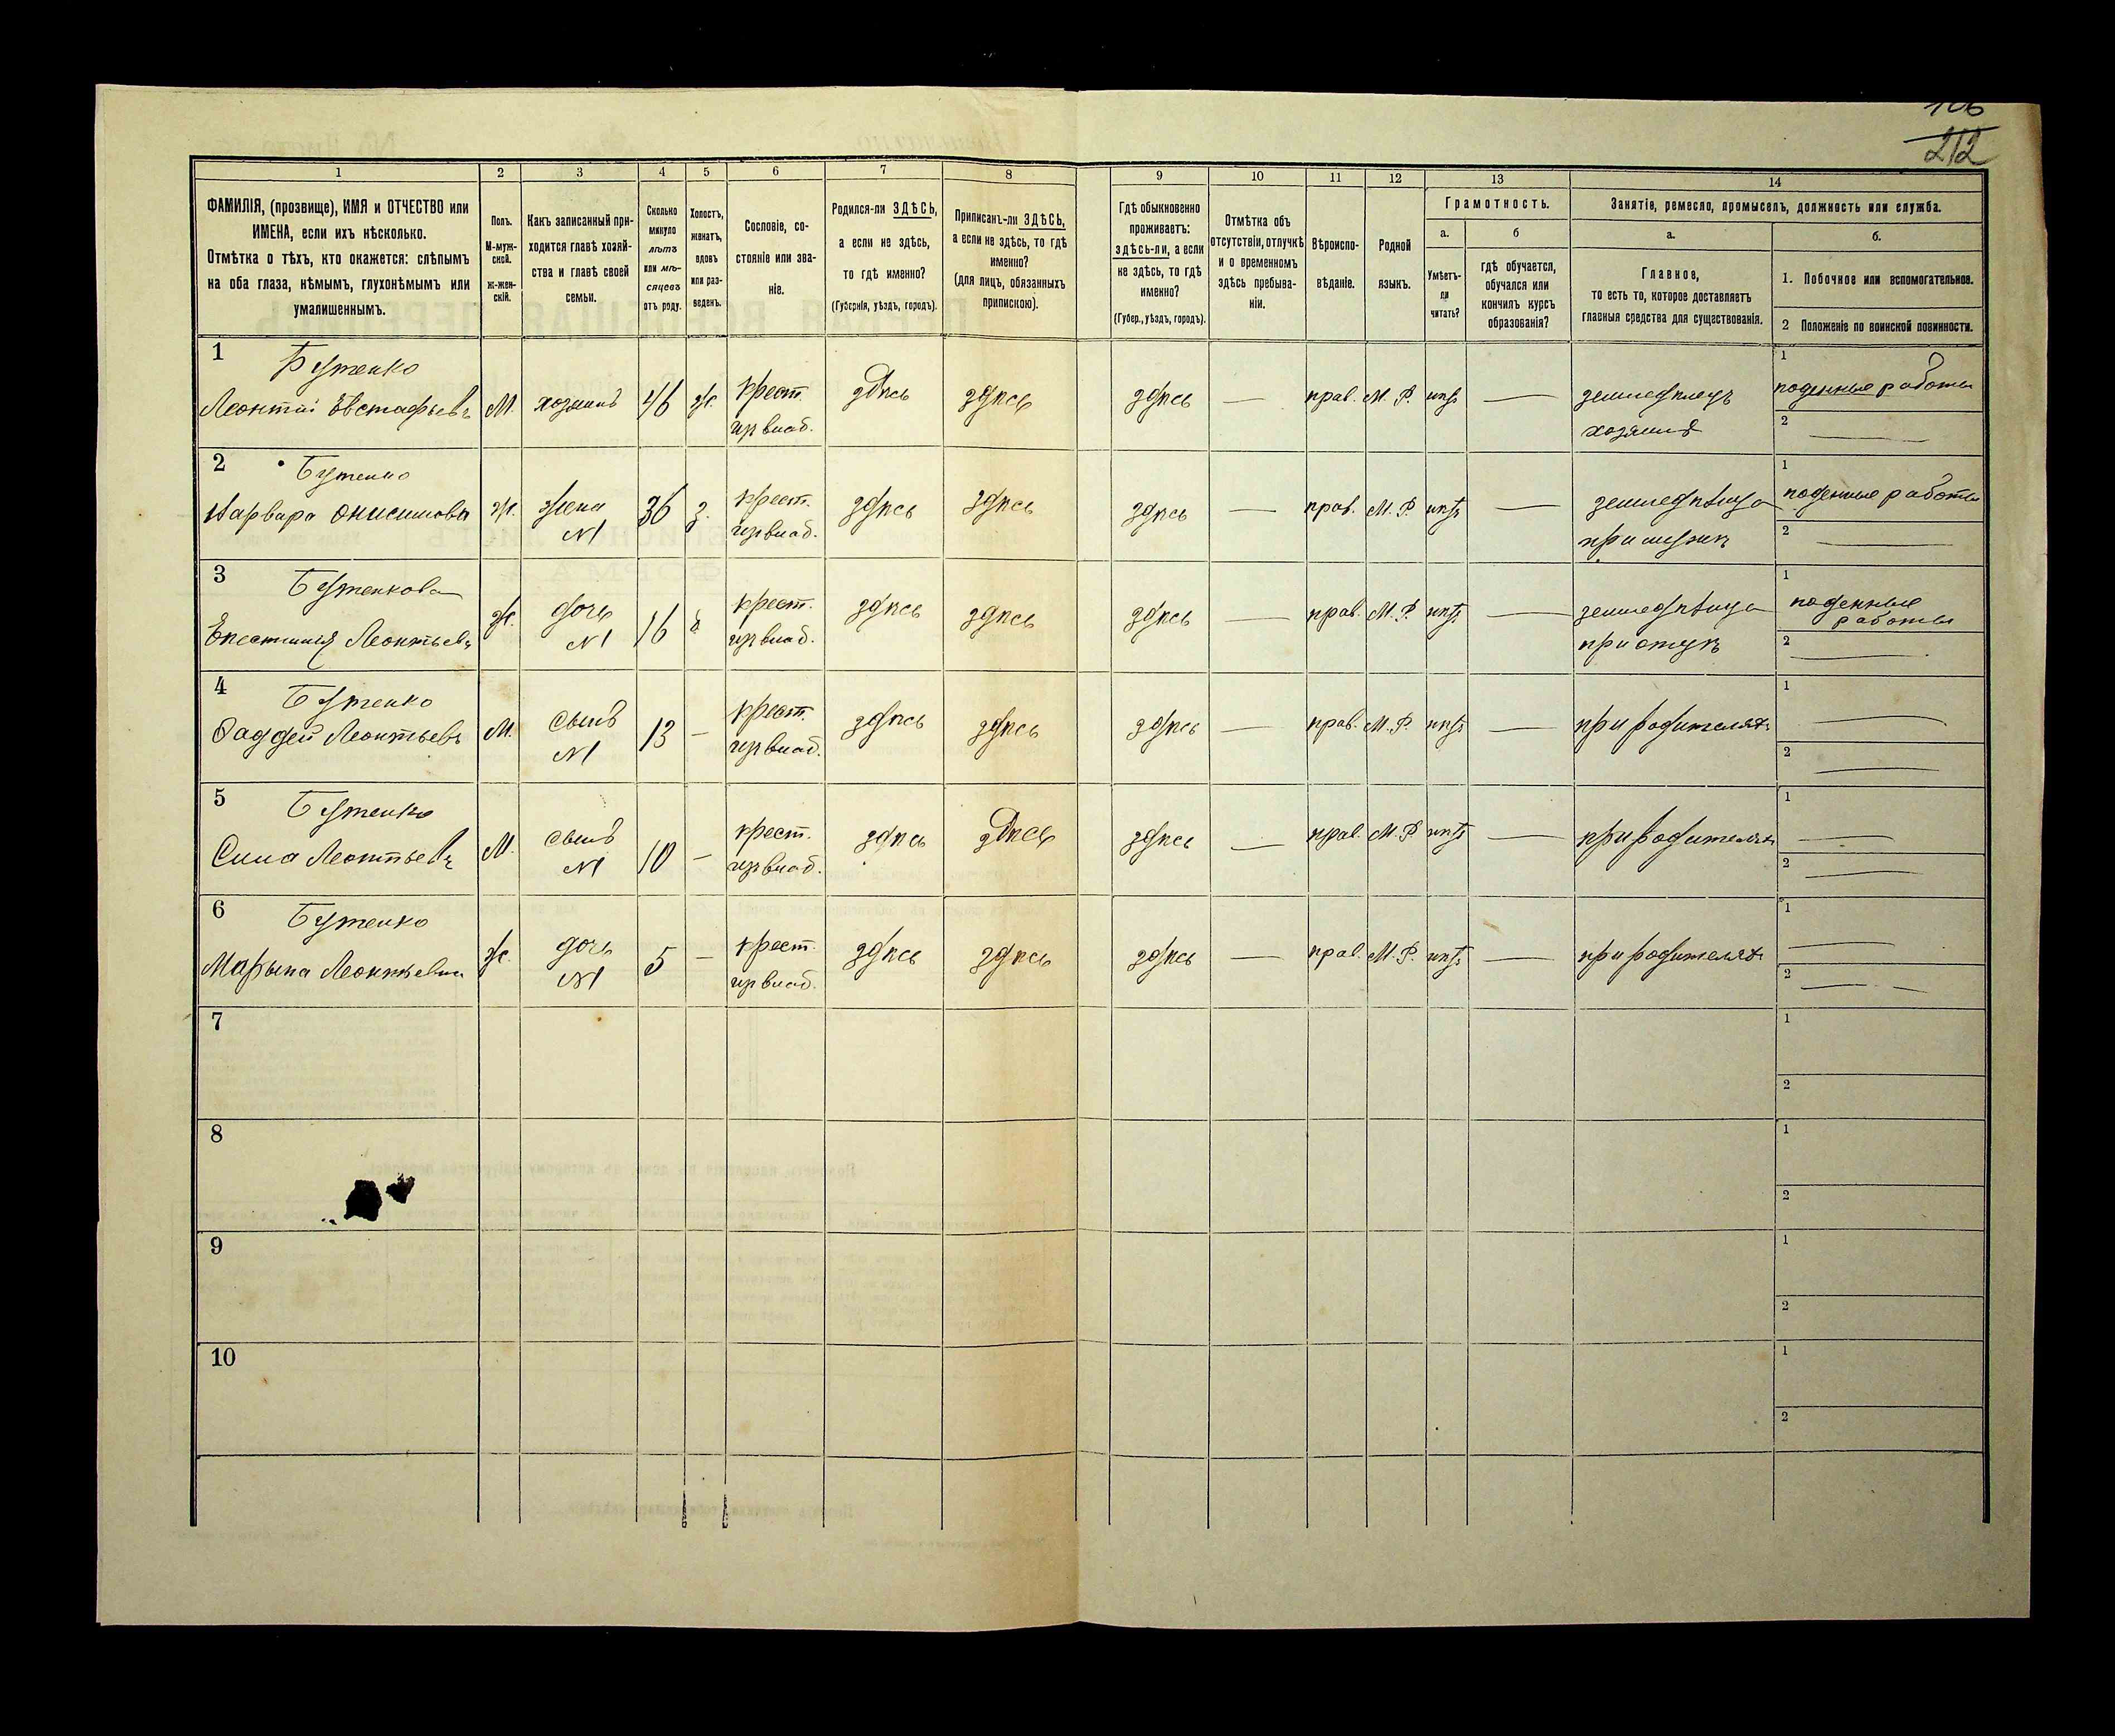 212
1 2 3 4 5 6 7 8 9 10 11 12 13 14
ФАМИЛІЯ, (прозвище), ИМЯ и ОТЧЕСТВО или
ИМЕНА, если ихъ нѣсколько.
Отмѣтка о тѣхъ, кто окажется: слѣпымъ
на оба глаза, нѣмымъ, глухонѣмымъ или
умалишеннымъ.
Полъ.
М-муж-
ской.
ж-жен-
скій.
Какъ записанный при-
ходится главѣ хозяй-
ства и главѣ своей
семьи.
Сколько
минуло
лѣтъ
или мѣ-
сяцевъ
отъ роду.
Холостъ,
женатъ,
вдовъ
или раз-
веденъ.
Сословіе, со-
стояніе или зва-
ніе.
Родился-ли ЗДѢСЬ,
а если не здѣсь,
то гдѣ именно?
(Губернія, уѣздъ, городъ).
Приписанъ-ли ЗДѢСЬ,
а если не здѣсь, то гдѣ
именно?
(для лицъ, обязанныхъ
припискою).
Гдѣ обыкновенно
проживаетъ:
здѣсь-ли, а если
не здѣсь, то гдѣ
именно?
(Губер., уѣздъ, городъ).
Отмѣтка объ
отсутствіи, отлучкѣ
и о временномъ
здѣсь пребыва-
ніи.
Вѣроиспо-
вѣданіе.
Родной
языкъ.
Грамотность.
а.
Умѣетъ-
ли
читать?
б
гдѣ обучается,
обучался или
кончилъ курсъ
образованія?
Занятіе, ремесло, промыселъ, должность или служба.
а.
Главное,
то есть то, которое доставляетъ
главныя средства для существованія.
б.
1. Побочное или вспомогательное.
2 Положеніе по воинской повинности.
1 Бутенко
Леонтій Евстафьевъ М. хозяинъ 46 ж. крест. здѣсь здѣсь здѣсь — прав. М. Р. нѣтъ — земледѣлецъ 1 поденные работы
из влад. хозяинъ 2 —
2 Бутенко
Варвара Онисимова ж. жена 36 з. крест. здѣсь здѣсь здѣсь — прав. М. Р. нѣтъ — земледѣлица 1 поденные работы
N1 из влад. при мужѣ 2 —
3 Бутенкова
Епестимія Леонтьев. ж. дочь 16 крест. здѣсь здѣсь здѣсь — прав. М. Р. нѣтъ — земледѣлица 1 поденные
N1 из влад. при отцѣ работы
2 —
4 Бутенко
Фаддей Леонтьевъ М. сынъ 13 — крест. здѣсь здѣсь здѣсь — прав. М. Р. нѣтъ — при родителяхъ 1 —
N1 из влад. 2 —
5 Бутенко
Сила Леонтьевъ М. сынъ 10 — крест. здѣсь здѣсь здѣсь — прав. М. Р. нѣтъ — при родителяхъ 1 —
N1 из влад. 2 —
6 Бутенко
Марьяна Леонтьевна ж. дочь 5 — крест. здѣсь здѣсь здѣсь — прав. М. Р. нѣтъ — при родителяхъ 1 —
N1 из влад. 2 —
7 1
2
8 1
2
9 1
2
10 1
2